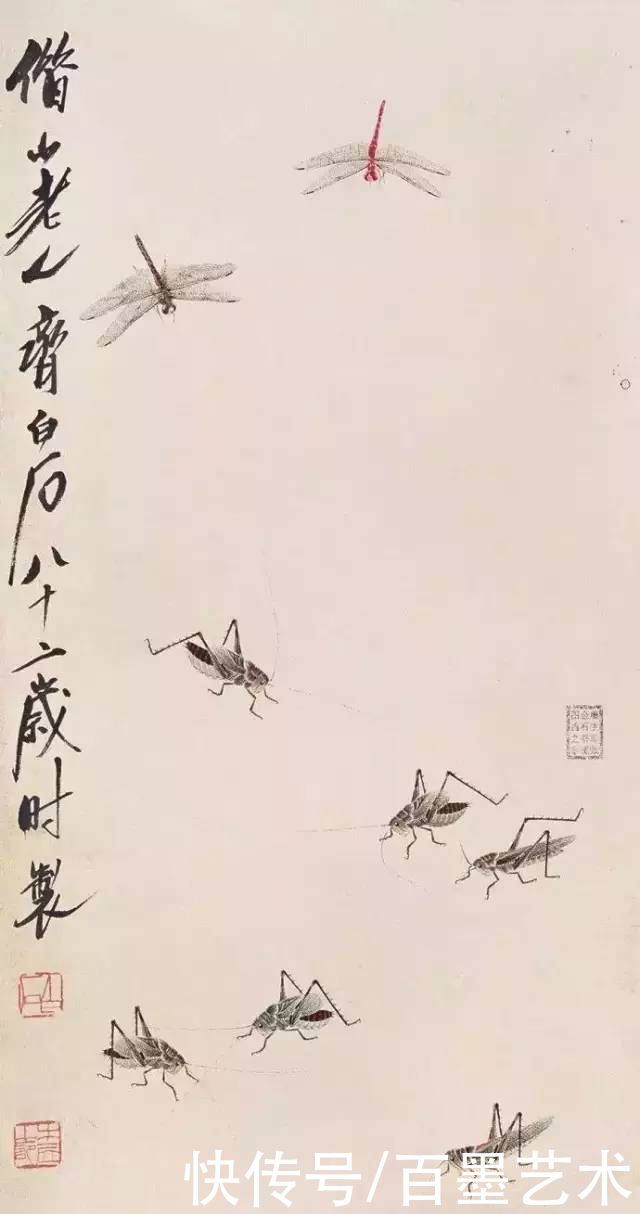 借山老人齊白石八十二歲时製
快传号/百墨艺术